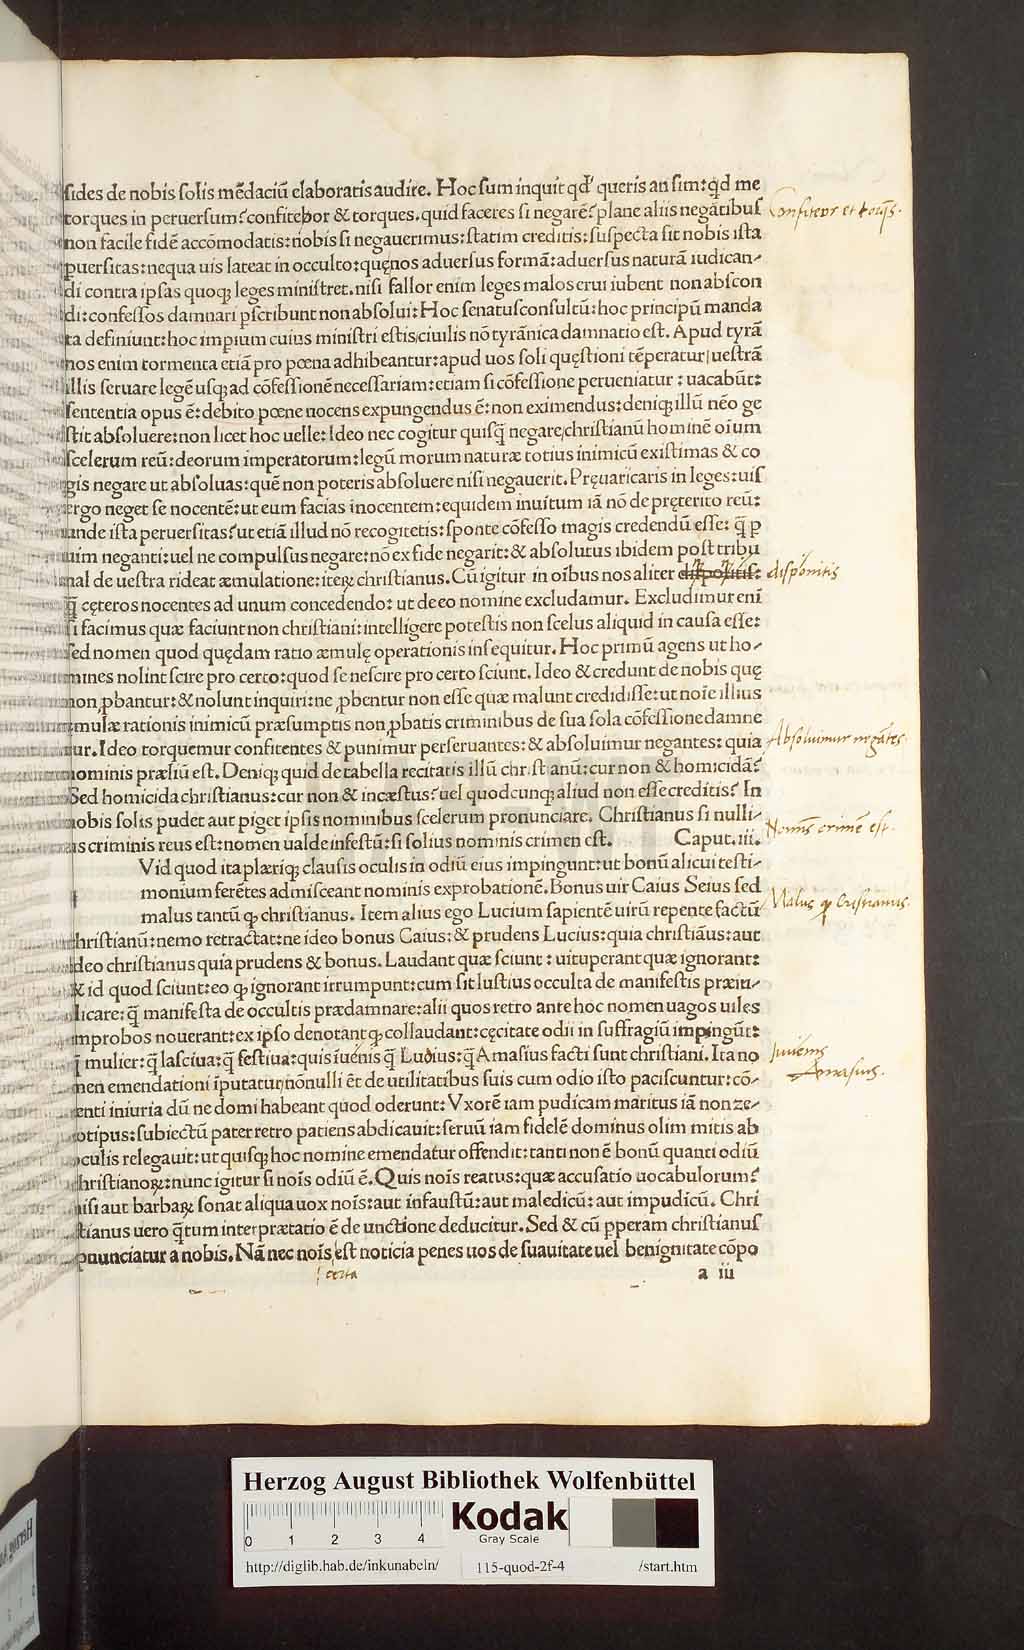 sides de nobis solis mēdaciū elaboratis audire. Hoc sum inquit qd' queris an sim: qd me
torques in peruersum? confiteor & torques. quid faceres si negarē? plane aliis negātibus
Confiteor et torq̄s.
non facile fidē accōmodatis: nobis si negauerimus: statim creditis: suspecta sit nobis ista
puersitas: nequa uis lateat in occulto: quę nos aduersus formā: aduersus naturā iudican-
di contra ipsas quoq; leges ministret. nisi fallor enim leges malos erui iubent non abscon
di: confessos damnari pscribunt non absolui: Hoc senatusconsultū: hoc principū manda
ta definiunt: hoc impium cuius ministri estis/ciuilis nō tyrānica damnatio est. Apud tyrā
nos enim tormenta etiā pro pœna adhibeantur: apud uos soli quęstioni tēperatur/uestrā
illis seruare legē usq; ad cōfessionē necessariam: etiam si cōfessione perueniatur: uacabūt:
sententia opus ē: debito pœne nocens expungendus ē: non eximendus: deniq; illū nēo ge
stit absoluere: non licet hoc uelle: Ideo nec cogitur quisq̄ negare/christianū hominē oīum
scelerum reū: deorum imperatorum: legū morum naturæ totius inimicū existimas & co
gis negare ut absoluas: quē non poteris absoluere nisi negauerit. Pręuaricaris in leges: uis
ergo neget se nocentē: ut eum facias inocentem: equidem inuitum iā nō de pręterito reū:
unde ista peruersitas? ut etiā illud nō recogitetis: sponte cōfesso magis credendū esse: q̄ p
uim neganti: uel ne compulsus negare: nō ex fide negarit: & absolutus ibidem post tribu
nal de uestra rideat æmulatione: iteꝝ christianus. Cū igitur in oībus nos aliter dispositis:
disponitis
q̄ cęteros nocentes ad unum concedendo: ut de eo nomine excludamur. Excludimur enī
si facimus quæ faciunt non christiani: intelligere potestis non scelus aliquid in causa esse:
sed nomen quod quędam ratio æmulę operationis insequitur. Hoc primū agens ut ho-
mines nolint scire pro certo: quod se nescire pro certo sciunt. Ideo & credunt de nobis quę
non ꝓbantur: & nolunt inquiri: ne ꝓbentur non esse quæ malunt credidisse: ut noīe illius
æmulæ rationis inimicū præsumptis non ꝓbatis criminibus de sua sola cōfessione damne
tur. Ideo torquemur confitentes & punimur perseruantes: & absoluimur negantes: quia
Absoluimur negātes.
nominis præliū est. Deniq; quid de tabella recitatis illū christianū: cur non & homicidā?
Sed homicida christianus: cur non & incæstus? uel quodcunq; aliud non esse creditis? In
nobis solis pudet aut piget ipsis nominibus scelerum pronunciare. Christianus si nulli-
us criminis reus est: nomen ualde infestū: si solius nominis crimen est. Caput. iii.
crimē est.
Vid quod ita plæriq; clausis oculis in odiū eius impingunt: ut bonū alicui testi-
monium ferētes admisceant nominis exprobationē. Bonus uir Caius Seius sed
malus tantū ꝙ christianus. Item alius ego Lucium sapientē uirū repente factū
Malus ꝙ Cristianus.
christianū: nemo retractat: ne ideo bonus Caius: & prudens Lucius: quia christiāus: aut
ideo christianus quia prudens & bonus. Laudant quæ sciunt: uituperant quæ ignorant:
& id quod sciunt: eo ꝙ ignorant irrumpunt: cum sit Iustius occulta de manifestis præiu-
dicare: q̄ manifesta de occultis prædamnare: alii quos retro ante hoc nomen uagos uiles
improbos nouerant: ex ipso denotant ꝙ collaudant: cęcitate odii in suffragiū impingūt:
q̄ mulier: q̄ lasciua: q̄ festiua: quis iuēnis q̄ Ludius: q̄ Amasius facti sunt christiani. Ita no
Iuuenis
Amasius.
men emendationi īputatur/nōnulli ēt de utilitatibus suis cum odio isto paciscuntur: cō-
tenti iniuria dū ne domi habeant quod oderunt: Vxorē iam pudicam maritus iā non ze-
lotipus: subiectū pater retro patiens abdicauit: seruū iam fidelē dominus olim mitis ab
oculis relegauit: ut quisq; hoc nomine emendatur offendit: tanti non ē bonū quanti odiū
christianoꝝ: nunc igitur si noīs odiū ē. Quis noīs reatus: quæ accusatio uocabulorum?
nisi aut barbaꝝ sonat aliqua uox noīs: aut infaustū: aut maledicū: aut impudicū. Chri
stianus uero q̄tum interprætatio ē de unctione deducitur. Sed & cū ꝑperam christianus
pnunciatur a nobis. Nā nec noīs est noticia penes uos de suauitate uel benignitate cōpo
certa
a iii
Herzog August Bibliothek Wolfenbüttel
Kodak
Gray Scale
0 1 2 3 4
http://diglib.hab.de/inkunabeln/ 115-quod-2f-4 /start.htm